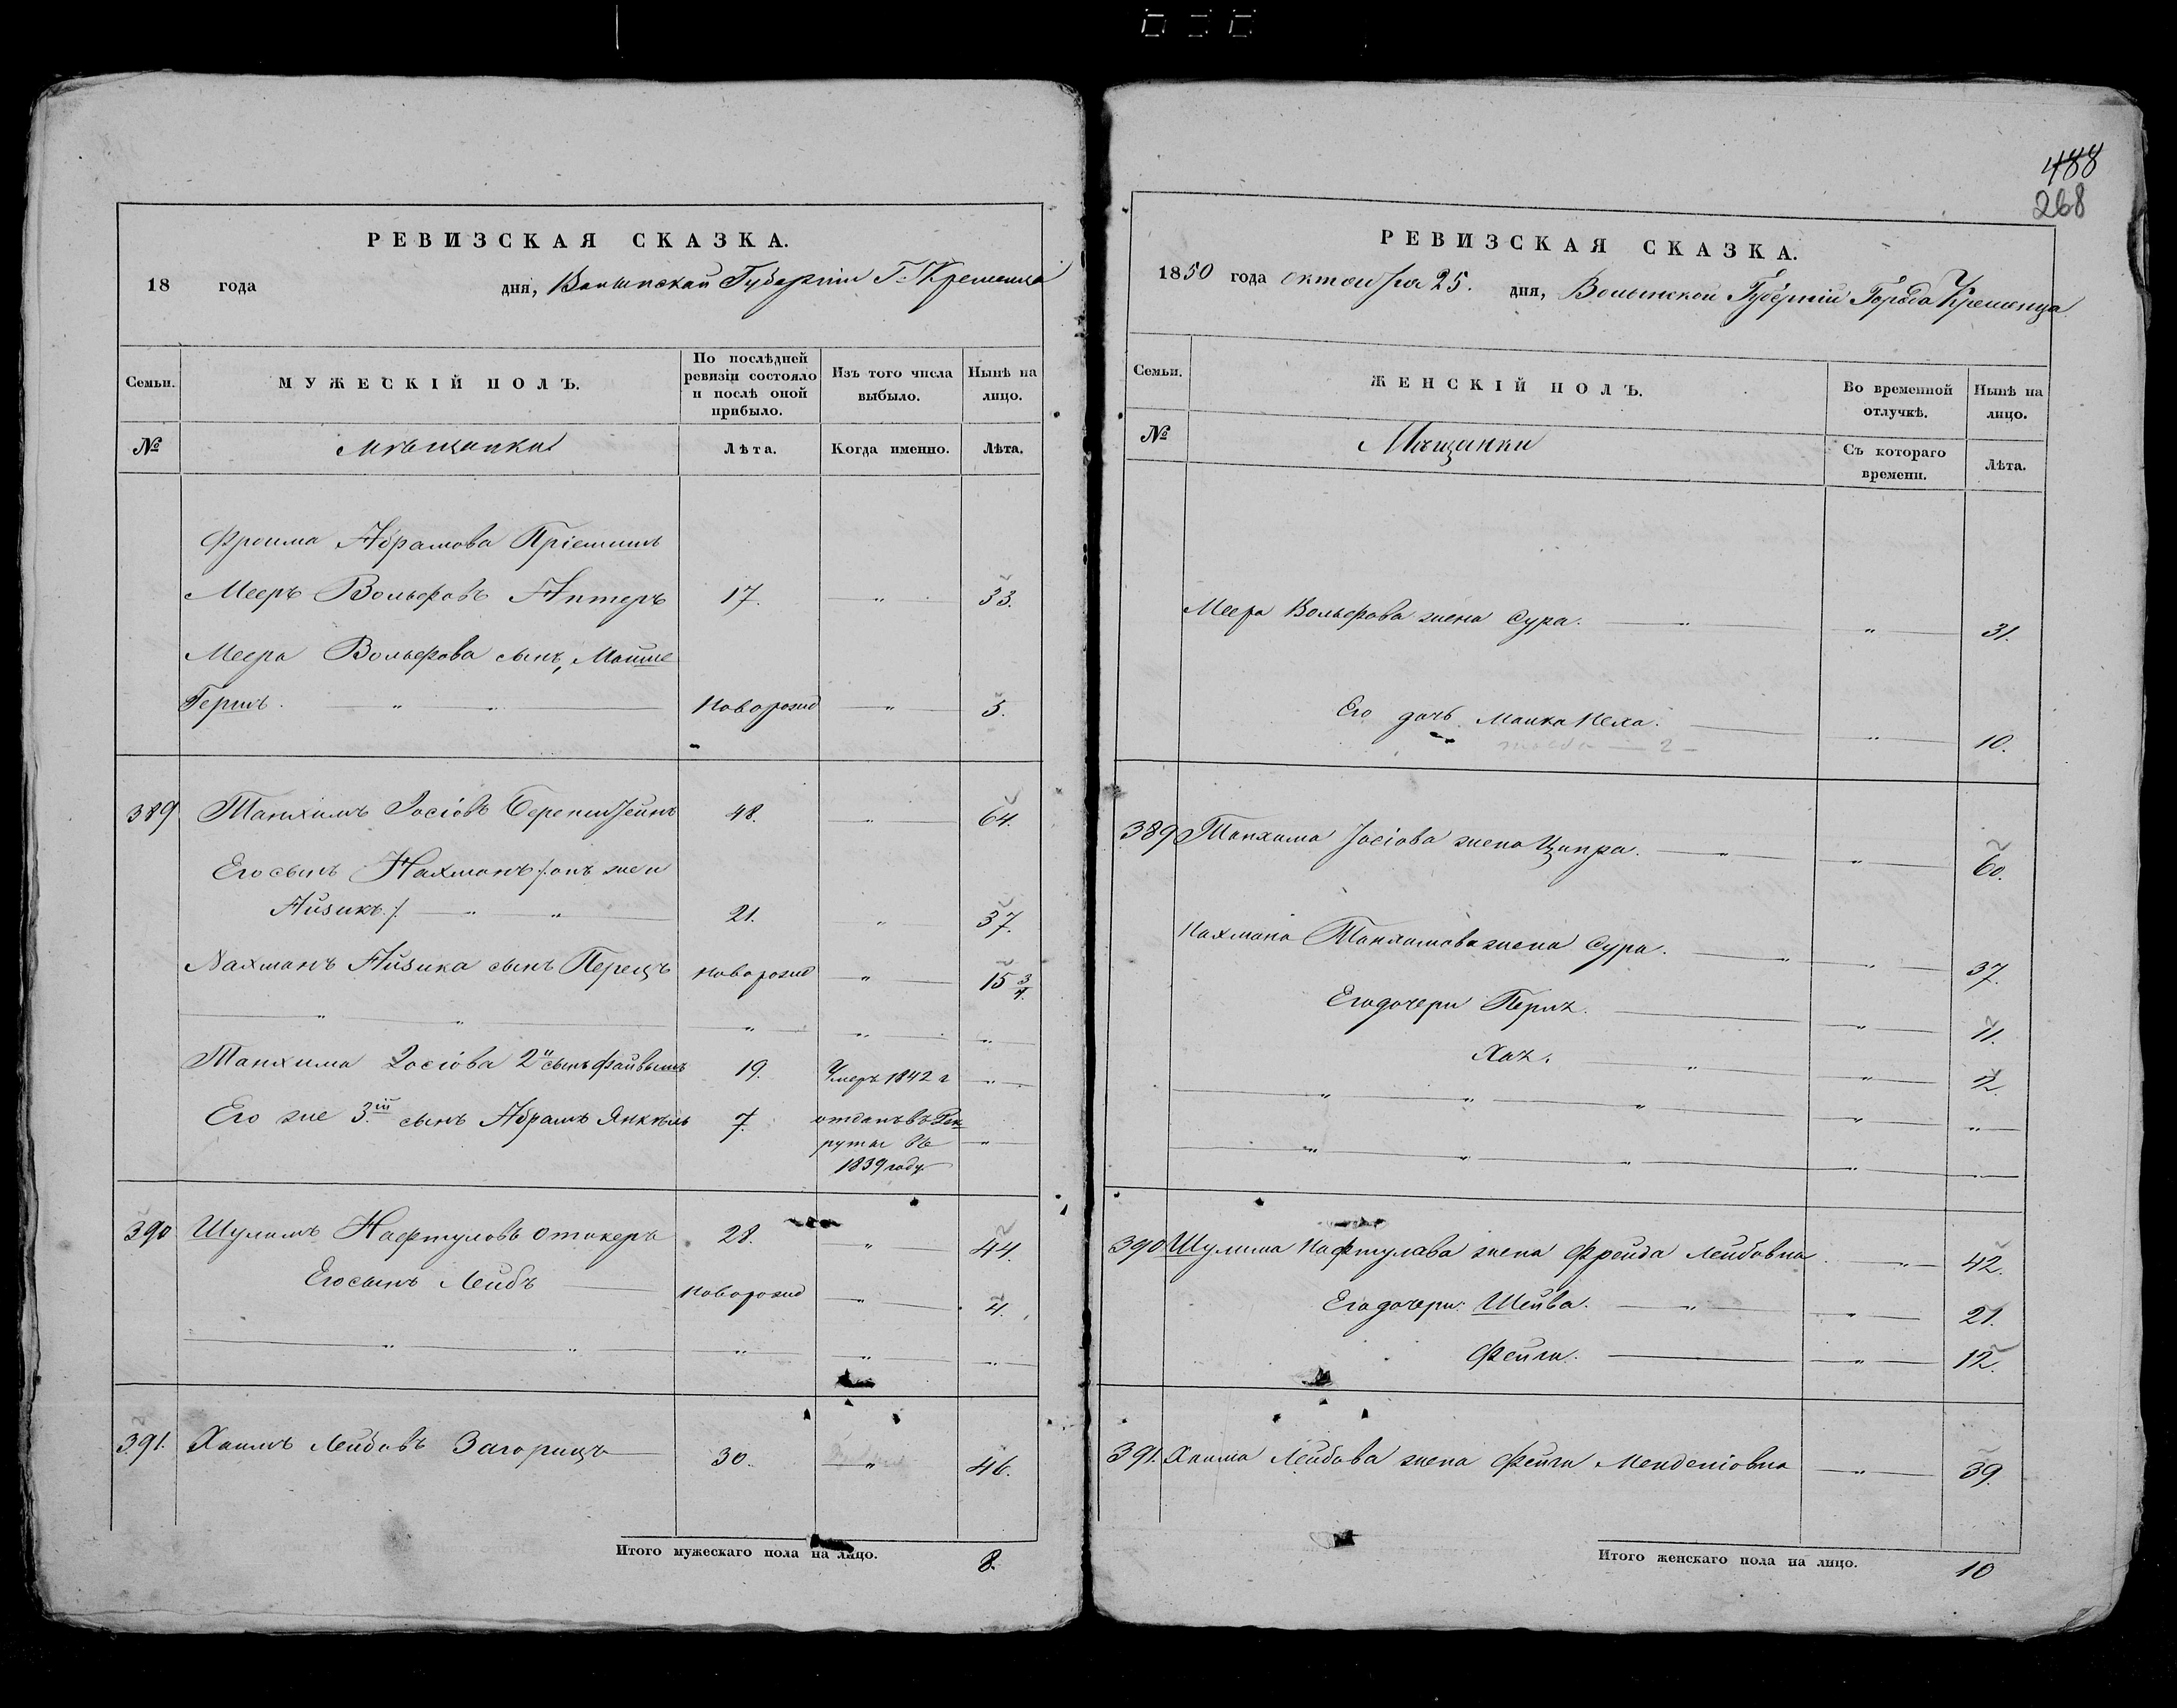 РЕВИЗСКАЯ СКАЗКА.
18 года дня, Волынской Губерніи Г. Кременца
Семьи. МУЖЕСКІЙ ПОЛЪ. По послѣдней ревизіи состояло и послѣ оной прибыло. Изъ того числа выбыло. Нынѣ на лицо.
№ Мѣщанки Лѣта. Когда именно. Лѣта.
Фроима Абрамова Пріемышъ
Мееръ Вольфовъ Аптеръ 17. — " — 33.
Меера Вольфова сынъ, Мошше
Гершъ. — " — " — новорожд — " — 5.
389 Танхимъ Іосіовъ Беренштейнъ 48. — " — 64.
Его сынъ Нахманъ /: онъ же и
Айзикъ :/ — " — " — 21. " 37.
Нахманъ Айзика сынъ Перецъ новорожд — " — 15 3/4.
Танхима Іосіова 2й сынъ Файвышъ 19. Умеръ 1842 г — " —
Его же 3.ій сынъ Абрамъ Янкель 7. отданъ въ Рек
руты въ — " —
1839 году
390 Шулимъ Нафтуловъ Отикеръ 28. — " — 44.
Его сынъ Лейбъ — новорожд — " — 4.
391. Хаимъ Лейбовъ Загорицъ — 30. — " — 46.
Итого мужескаго пола на лицо. 8.
488
268
РЕВИЗСКАЯ СКАЗКА.
1850 года октября 25. дня, Волынской Губерніи Города Кременца
Семьи. ЖЕНСКІЙ ПОЛЪ. Во временной отлучкѣ. Нынѣ на лицо.
№ Мѣщанки Съ котораго времени. Лѣта.
Меера Вольфова жена Сура. — " — " — 31.
Его дочь Малка Неха. — " — 10.
389 Танхима Іосіова жена Ципра. — " — " — 60.
Нахмана Танхимова жена Сура. — " — " — 37.
Его дочери Перля. — " — 11.
Хая. — " — " — 2.
390 Шулима Нафтулова жена Фрейда Лейбовна. — " — 42.
Его дочери: Шейва. — " — " — 21.
Фейга. — " — 12.
391. Хаима Лейбова жена Фейга Менделіовна — " — 39.
Итого женскаго пола на лицо. 10